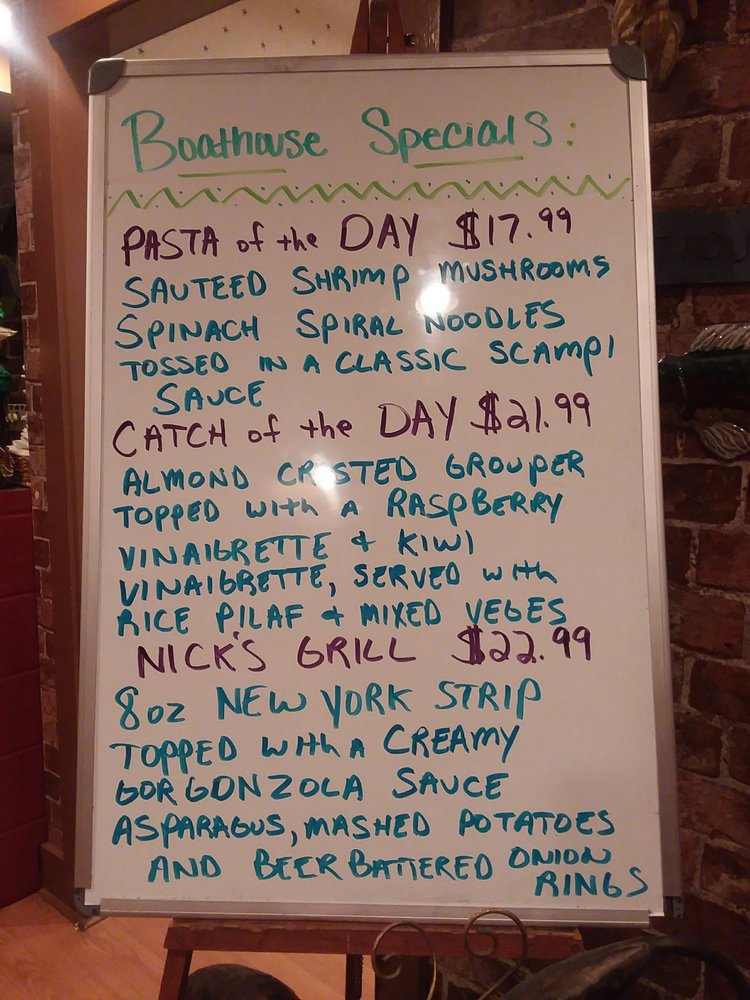 Boathouse Specials:
PASTA of the DAY $17.99
SAUTEED SHRIMP MUSHROOMS
SPINACH SPIRAL NOODLES
TOSSED IN A CLASSIC SCAMPI
SAUCE
CATCH of the DAY $21.99
ALMOND CRUSTED GROUPER
TOPPED WITH A RASPBERRY
VINAIGRETTE & KIWI
VINAIGRETTE, SERVED WITH
RICE PILAF & MIXED VEGES
NICK'S GRILL $22.99
8oz NEW YORK STRIP
TOPPED WITH A CREAMY
GORGONZOLA SAUCE
ASPARAGUS, MASHED POTATOES
AND BEER BATTERED ONION
RINGS